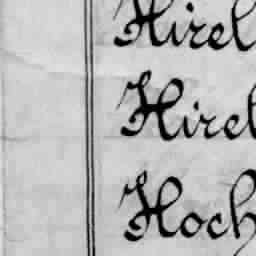 Hirel
Hirel
Hoch